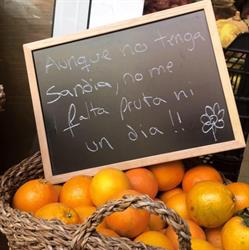 Aunque no tenga
Sandia, no me
falta fruta ni
un dia !!